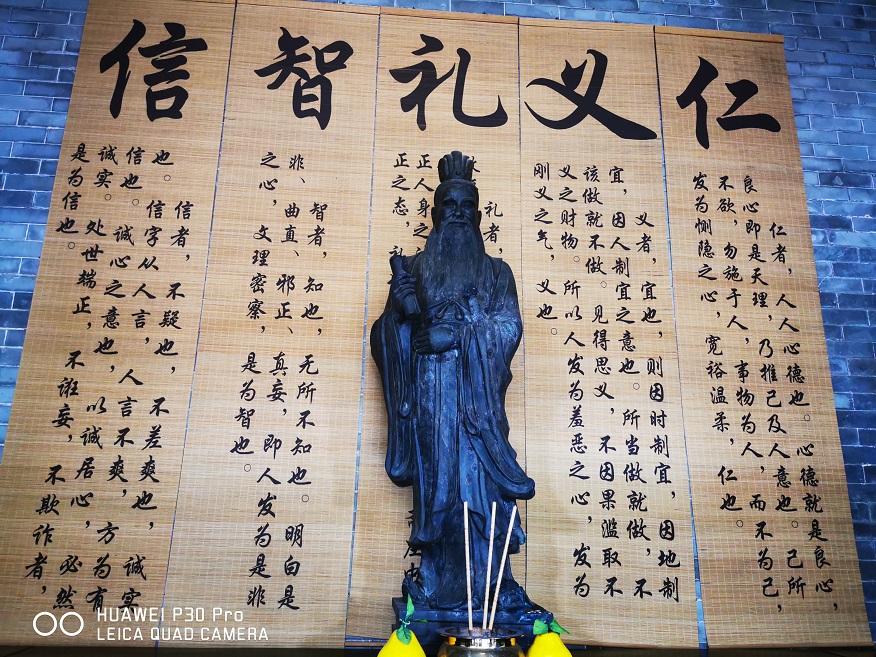 仁
仁者,人人心德也。心德就是良心,
良心即是天理,乃推己及人意也。己所
不欲,勿施于人,事物为人,而不为己,
发为恻隐之心,宽裕温柔,仁也。
义
义者,宜也,则因时制宜,因地制
宜,因人制宜之意也。所当做就做,不
该做就不做。见得思义,不因果滥取不
义之财物。所以人发为羞恶之心,发为
刚义之气,义也。
礼
礼者,
正人身之
正之态,礼
智
智者,知也,无所不知也。明白是
非、曲直、邪正、真妄,即人发为是非
之心,文理密察,是为智也。
信
信者,不疑也,不差爽也,诚实
也。信字从人言,人言不爽,方为有
信也。诚心之意也,以诚居心,必然
诚实。处世端正,不诳妄,不欺诈者,
是为信也。
HUAWEI P30 Pro
LEICA QUAD CAMERA